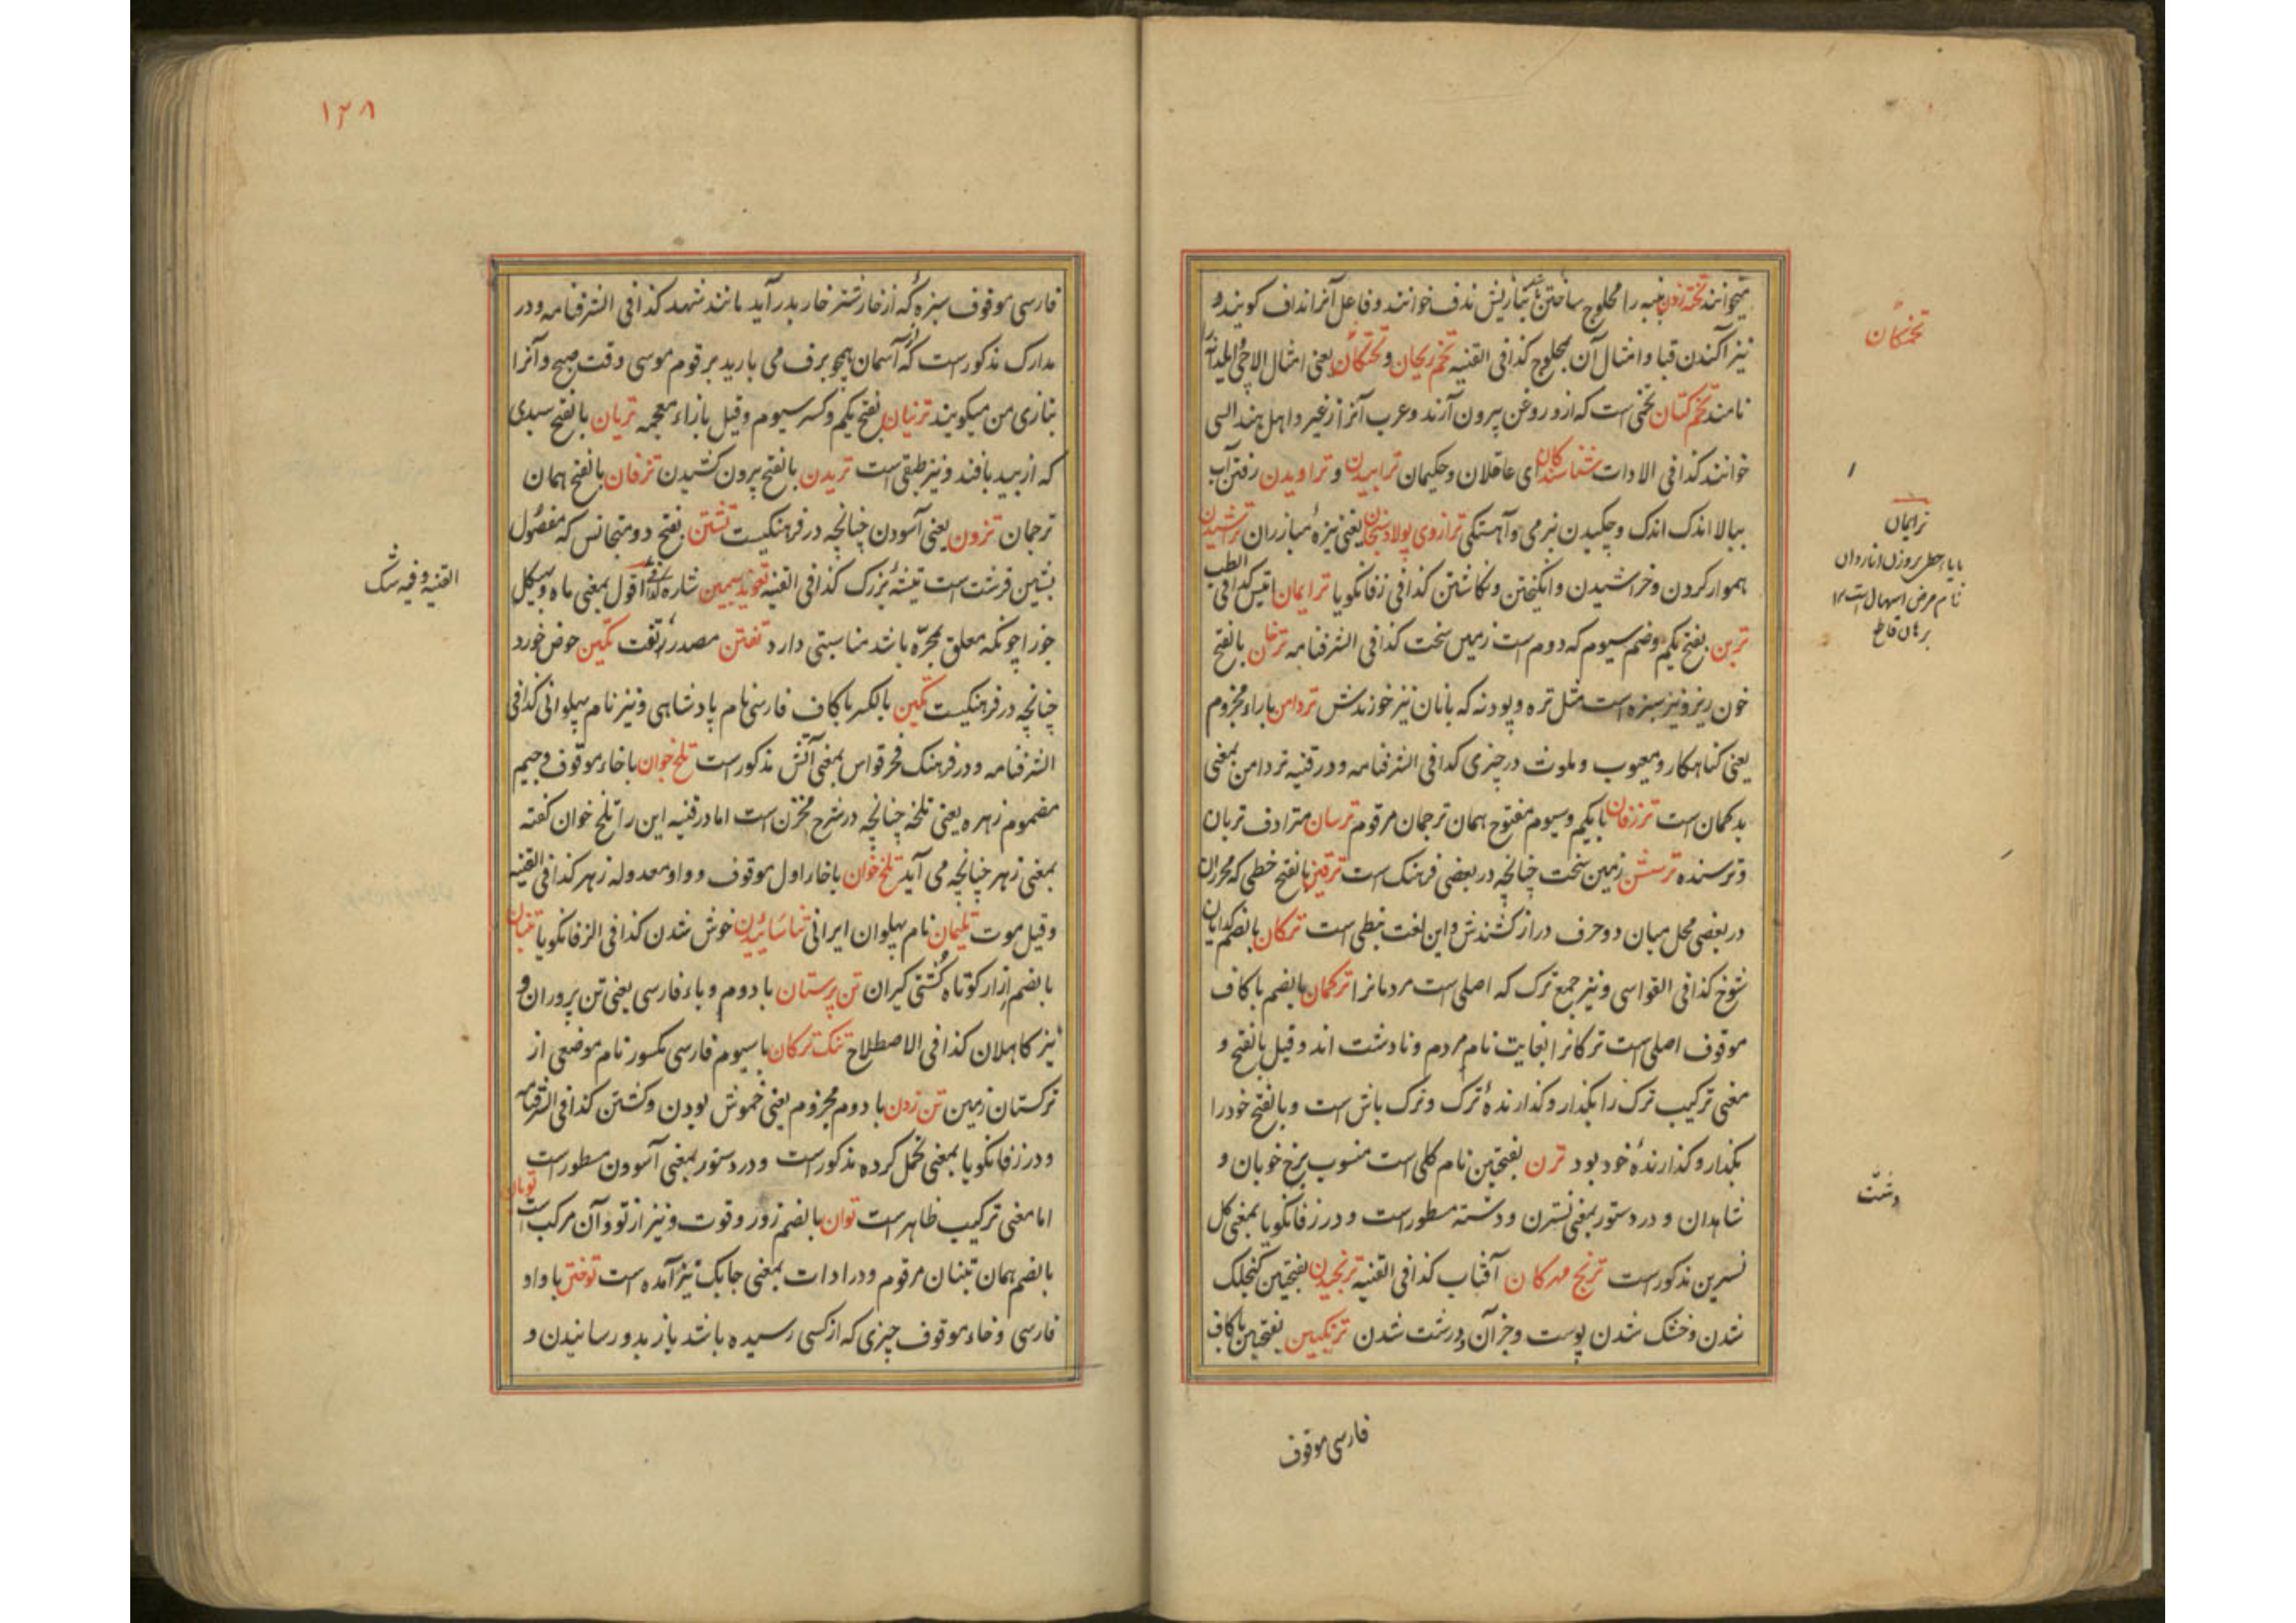 میخوانند تخته زدن پنبه را محلوج ساختن بتازیش ندف خوانند و فاعل آنرا نداف کویند و
نیز آکندن قبا و امثال آن بمحلوج کذا فی القنیه تخم ریحان و تختکان یعنی امثال
نامند تخم کتان تخمی است که ازو روغن بیرون آرند و عرب آنرا زغیر و اهل هند السی
خوانند کذا فی الادات ای عاقلان و حکیمان ترابیدن و تراویدن رفتن آب
ببالا اندک اندک و چکیدن بنرمی و آهستگی ترازوی پولاد سنجان یعنی نیزه مبارزان تراشیدن
هموار کردن و خراشیدن و انکیختن و نکاشتن کذا فی زفانکویا ترایمان کذا فی الطب
ترین بفتح یکم و ضم سیوم که دوم است زمین سخت کذا فی الشرفنامه ترخان بالفتح
خون ریز و نیز سبزه است مثل تره و پودنه که بانان نیز خورندش تردامن باراء مجزوم
یعنی کناهکار و معیوب و ملوث در چیزی کذا فی الشرفنامه و در قنیه تردامن بمعنی
بدکمان است ترزفان بایکم و سیوم مفتوح همان ترجمان مرقوم ترسان مترادف تربان
و ترسنده ترسشن زمین سخت چنانچه در بعضی فرهنک است ترقین بالفتح خطی که محرران
در بعضی محل میان دو حرف دراز کشندش و این لغت نبطی است ترکان بالضم
شوخ کذا فی القواسی و نیز جمع ترک که اصلی است مردمانرا ترکمان بالضم باکاف
موقوف اصلی است ترکانرا بغایت نام مردم و نادشت اند و قیل بالفتح و
معنی ترکیب ترک را بکذار و کذارنده ترک و ترک باش است و بالفتح خود را
بکذار و کذارنده خود بود ترن بفتحتین نام کلی است منسوب برخ خوبان و
شاهدان و در دستور بمعنی نسترن و دشته مسطور است و در زفانکویا بمعنی کل
نسرین مذکور است ترنج مهرکان آفتاب کذا فی القنیه ترنجیدن بفتحتین کنجلک
شدن و خشک شدن پوست و جز آن و درشت شدن ترنکبین بفتحتین باکاف
فارسی موقوف
تخمکان
ترایمان
بایاء حطی بروزن اناردان
نام مرض اسهال است ۱۲
برهان قاطع
دشت
۱۲۸
فارسی موقوف سبزه که از خار شتر خار بدر آید مانند شهد کذا فی الشرفنامه و در
مدارک مذکور است که از آسمان همچو برف می بارید بر قوم موسی وقت صبح و آنرا
بتازی من میکویند ترنیان بفتح یکم و کسر سیوم و قیل بازاء معجمه تریان بالفتح سبدی
که از بید بافند و نیز طبقی است تریدن بالفتح بیرون کشیدن تزفان بالفتح همان
ترجمان تزون یعنی آسودن چنانچه در فرهنکیست تشتن بفتح دو متجانس که مفصول
بشین قرشت است تیشه بزرک کذا فی القنیه تعویذ سیمین ستاره اقول بمعنی ماه و هیکل
جوزا چونکه معلق بمجره باشد مناسبتی دارد تفتن مصدر تفت تکین حوض خورد
چنانچه در فرهنکیست تکین بالکسر باکاف فارسی نام پادشاهی و نیز نام پهلوانی کذا فی
الشرفنامه و در فرهنک فخر قواس بمعنی آتش مذکور است تلخ جوان باخاء موقوف و جیم
مضموم زهره یعنی تلخه چنانچه در شرح مخزن است اما در قنیه این را تلخ خوان کفته
بمعنی زهر چنانچه می آید تلخ خوان باخاء اول موقوف و واو معدوله زهر کذا فی القنیه
و قیل موت تلیمان نام پهلوان ایرانی تناسائیدن خوش شدن کذا فی الزفانکویا تنبان
بالضم ازار کوتاه کشتی کیران تن پرستان بادوم و باء فارسی یعنی تن پروران و
نیز کاهلان کذا فی الاصطلاح تنک ترکان باسیوم فارسی مکسور نام موضعی از
ترکستان زمین تن زدن بادوم مجزوم یعنی خموش بودن و کشتن کذا فی الشرفنامه
و در زفانکویا بمعنی تحمل کرده مذکور است و در دستور بمعنی آسودن مسطور است
اما معنی ترکیب ظاهر است توان بالضم زور و قوت و نیز از تو و آن مرکب است توبان
بالضم همان تنبان مرقوم و در ادات بمعنی چابک نیز آمده است توختن باواو
فارسی و خاء موقوف چیزی که از کسی رسیده باشد باز بدو رسانیدن و
القنیه و فیه شک